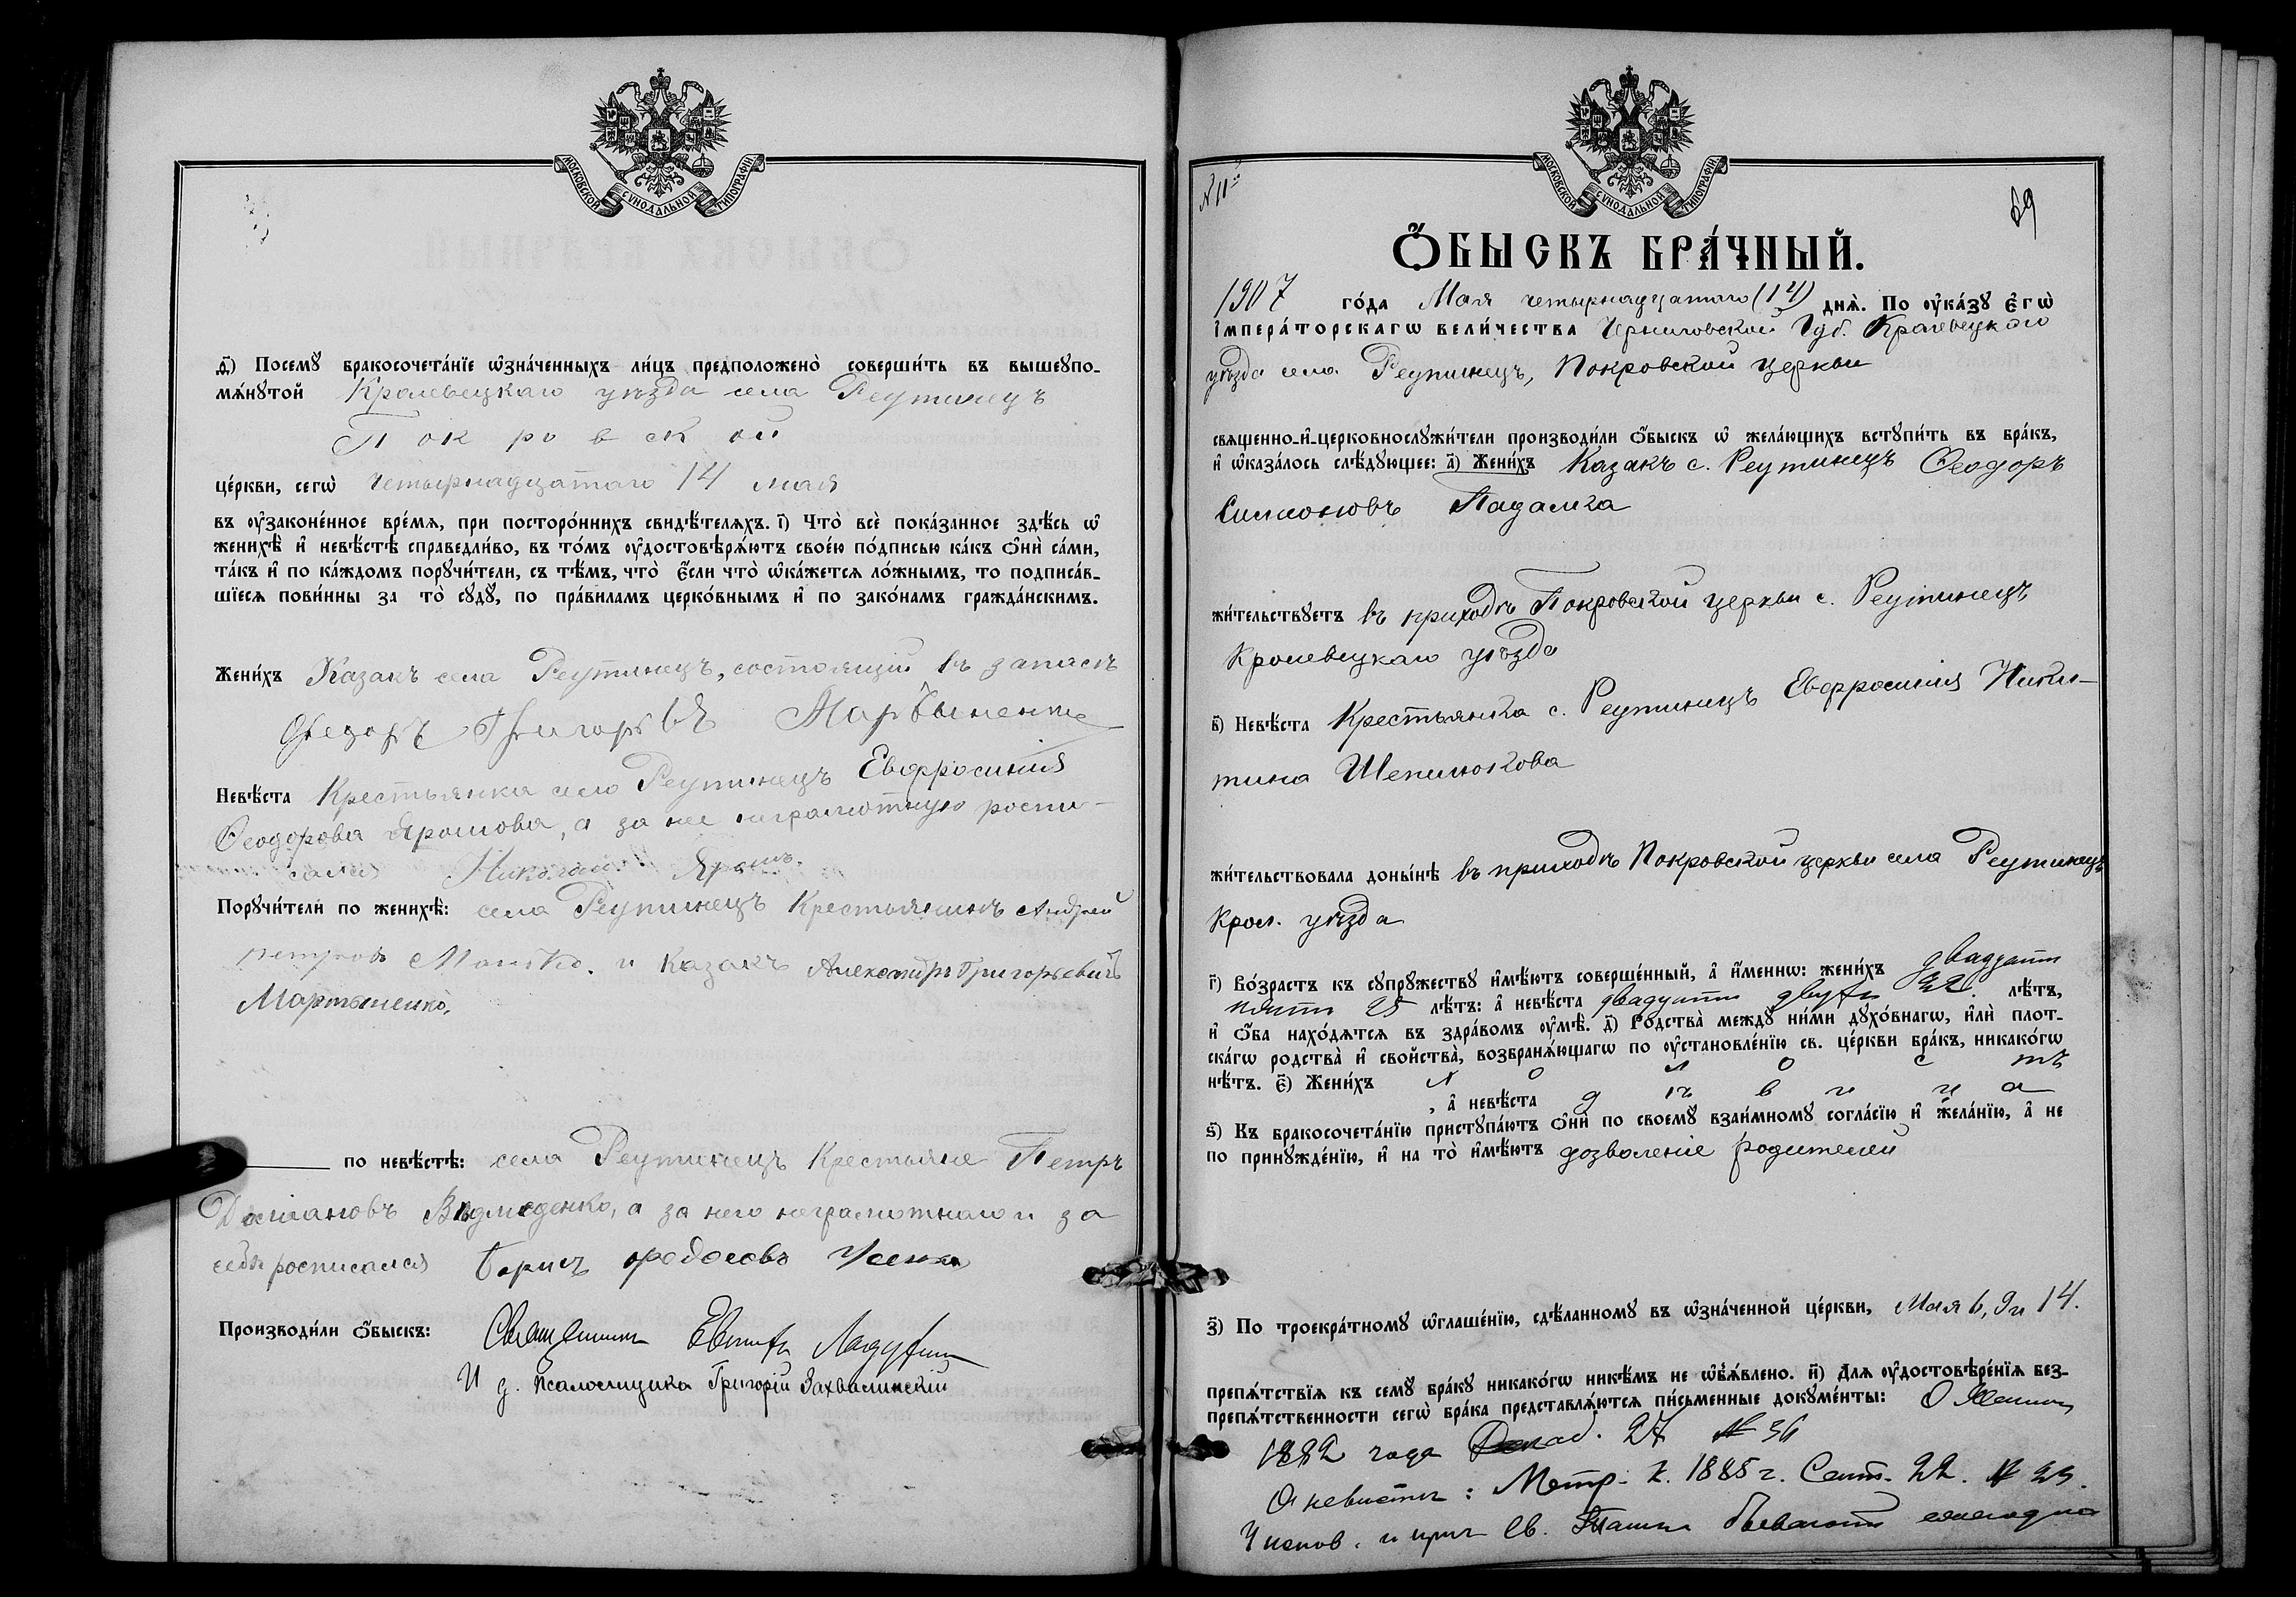 МОСКОВСКОЙ СѴНОДАЛЬНОЙ ТИПОГРАФІИ
д҃і) Посемꙋ бракосочета́нїе ѡ҆зна́ченныхъ ли́цъ предположено̀ соверши́ть въ вышеꙋпо-
мѧ́нꙋтой Кролевецкаго уѣзда села Реутинецъ
Покровской
це́ркви, сегѡ̀ четырнадцатаго 14 мая
въ ᲂу҆законе́нное вре́мѧ, при посторо́ннихъ свидѣ́телѧхъ. і҃) Что̀ всѐ пока́занное здѣ́сь ѡ҆
женихѣ̀ и҆ невѣ́стѣ справедли́во, въ то́мъ ᲂу҆достовѣрѧ́ютъ свое́ю по́дписью ка́къ ѻ҆нѝ са́ми,
та́къ и҆ по ка́ждомъ порꙋчи́тели, съ тѣ́мъ, что̀ є҆́сли что̀ ѡ҆ка́жется ло́жнымъ, то подписа́в-
шїеся пови́нны за то̀ сꙋдꙋ̀, по пра́виламъ церко́внымъ и҆ по зако́намъ гражда́нскимъ.
Жени́хъ Казакъ села Реутинецъ, состоящій въ запасѣ
Федоръ Григорьевъ Мартыненко
Невѣ́ста Крестьянка села Реутинецъ Евфросинія
Феодорова Ярошова, а за нее неграмотную роспи-
сался Николай Ярошъ.
Порꙋчи́тели по женихѣ̀: села Реутинецъ Крестьянинъ Андрей
Петровъ и Казакъ Александръ Григорьевичъ
Мартыненко.
по невѣ́стѣ: села Реутинецъ Крестьяне Петръ
Даміановъ Вѣдмеденко, а за него неграмотнаго и за
себя росписался Борисъ
Производи́ли ѻ҆́быскъ: Священникъ
И д. псаломщика Григорій Захвалинскій
МОСКОВСКОЙ СѴНОДАЛЬНОЙ ТИПОГРАФІИ
№ 11
69
Ѻ҆́БЫСКЪ БРА́ЧНЫЙ.
1907 го́да Мая четырнадцатаго (14) днѧ̀. По ᲂу҆ка́зꙋ є҆гѡ̀
і҆мпера́торскагѡ вели́чества Черниговской Губ. Кролевецкаго
уѣзда села Реутинецъ, Покровской церкви
свѧщенно-и҆-церковнослꙋжи́тели производи́ли ѻ҆́быскъ ѡ҆ жела́ющихъ встꙋпи́ть въ бра́къ,
и҆ ѡ҆каза́лось слѣ́дꙋющее: а҃) Жени́хъ Казакъ с. Реутинецъ Феодоръ
Симоновъ Падалка
жи́тельствꙋетъ въ приходѣ Покровской церкви с. Реутинецъ
Кролевецкаго уѣзда
в҃) Невѣ́ста Крестьянка с. Реутинецъ Евфросинія Ники-
тина Шепилюкова
жи́тельствовала доны́нѣ въ приходѣ Покровской церкви села Реутинецъ
Крол. уѣзда
г҃) Во́зрастъ къ сꙋпрꙋ́жествꙋ и҆мѣ́ютъ соверше́нный, а҆ и҆́меннѡ: жени́хъ двадцати
пяти 25 лѣ́тъ: а҆ невѣ́ста двадцати двухъ 22 лѣ́тъ,
и҆ ѻ҆́ба нахо́дятся въ здра́вомъ ᲂу҆мѣ̀. д҃) Родства̀ междꙋ̀ ни́ми дꙋхо́внагѡ, и҆лѝ плот-
ска́гѡ родства̀ и҆ сво́йства̀, возбранѧ́ющагѡ по ᲂу҆становле́нїю св. це́ркви бра́къ, никако́гѡ
нѣ́тъ. є҃) Жени́хъ холостъ
, а҆ невѣ́ста дѣвица
ѕ҃) Къ бракосочета́нїю пристꙋпа́ютъ ѻ҆нѝ по своемꙋ̀ взаи́мномꙋ согла́сїю и҆ жела́нїю, а҆ не
по принꙋжде́нїю, и҆ на то̀ и҆мѣ́ютъ дозволеніе родителей
з҃) По троекра́тномꙋ ѡ҆глаше́нїю, сдѣ́ланномꙋ въ ѡ҆зна́ченной це́ркви, Мая 6, 9 и 14.
препѧ́тствїя къ семꙋ̀ бра́кꙋ никако́гѡ никѣ́мъ не ѡ҆б̾ѧ́влено. и҃) Для ᲂу҆достовѣре́нїя без-
препѧ́тственности сегѡ̀ бра́ка представлѧ́ются пи́сьменные докꙋме́нты: О женихѣ
1882 года Декаб. 27 № 36
О невѣстѣ: Метр. к. 1885 г. Сент. 22. № 23.
Исповѣд. и прич. Св. Таинъ бываютъ ежегодно